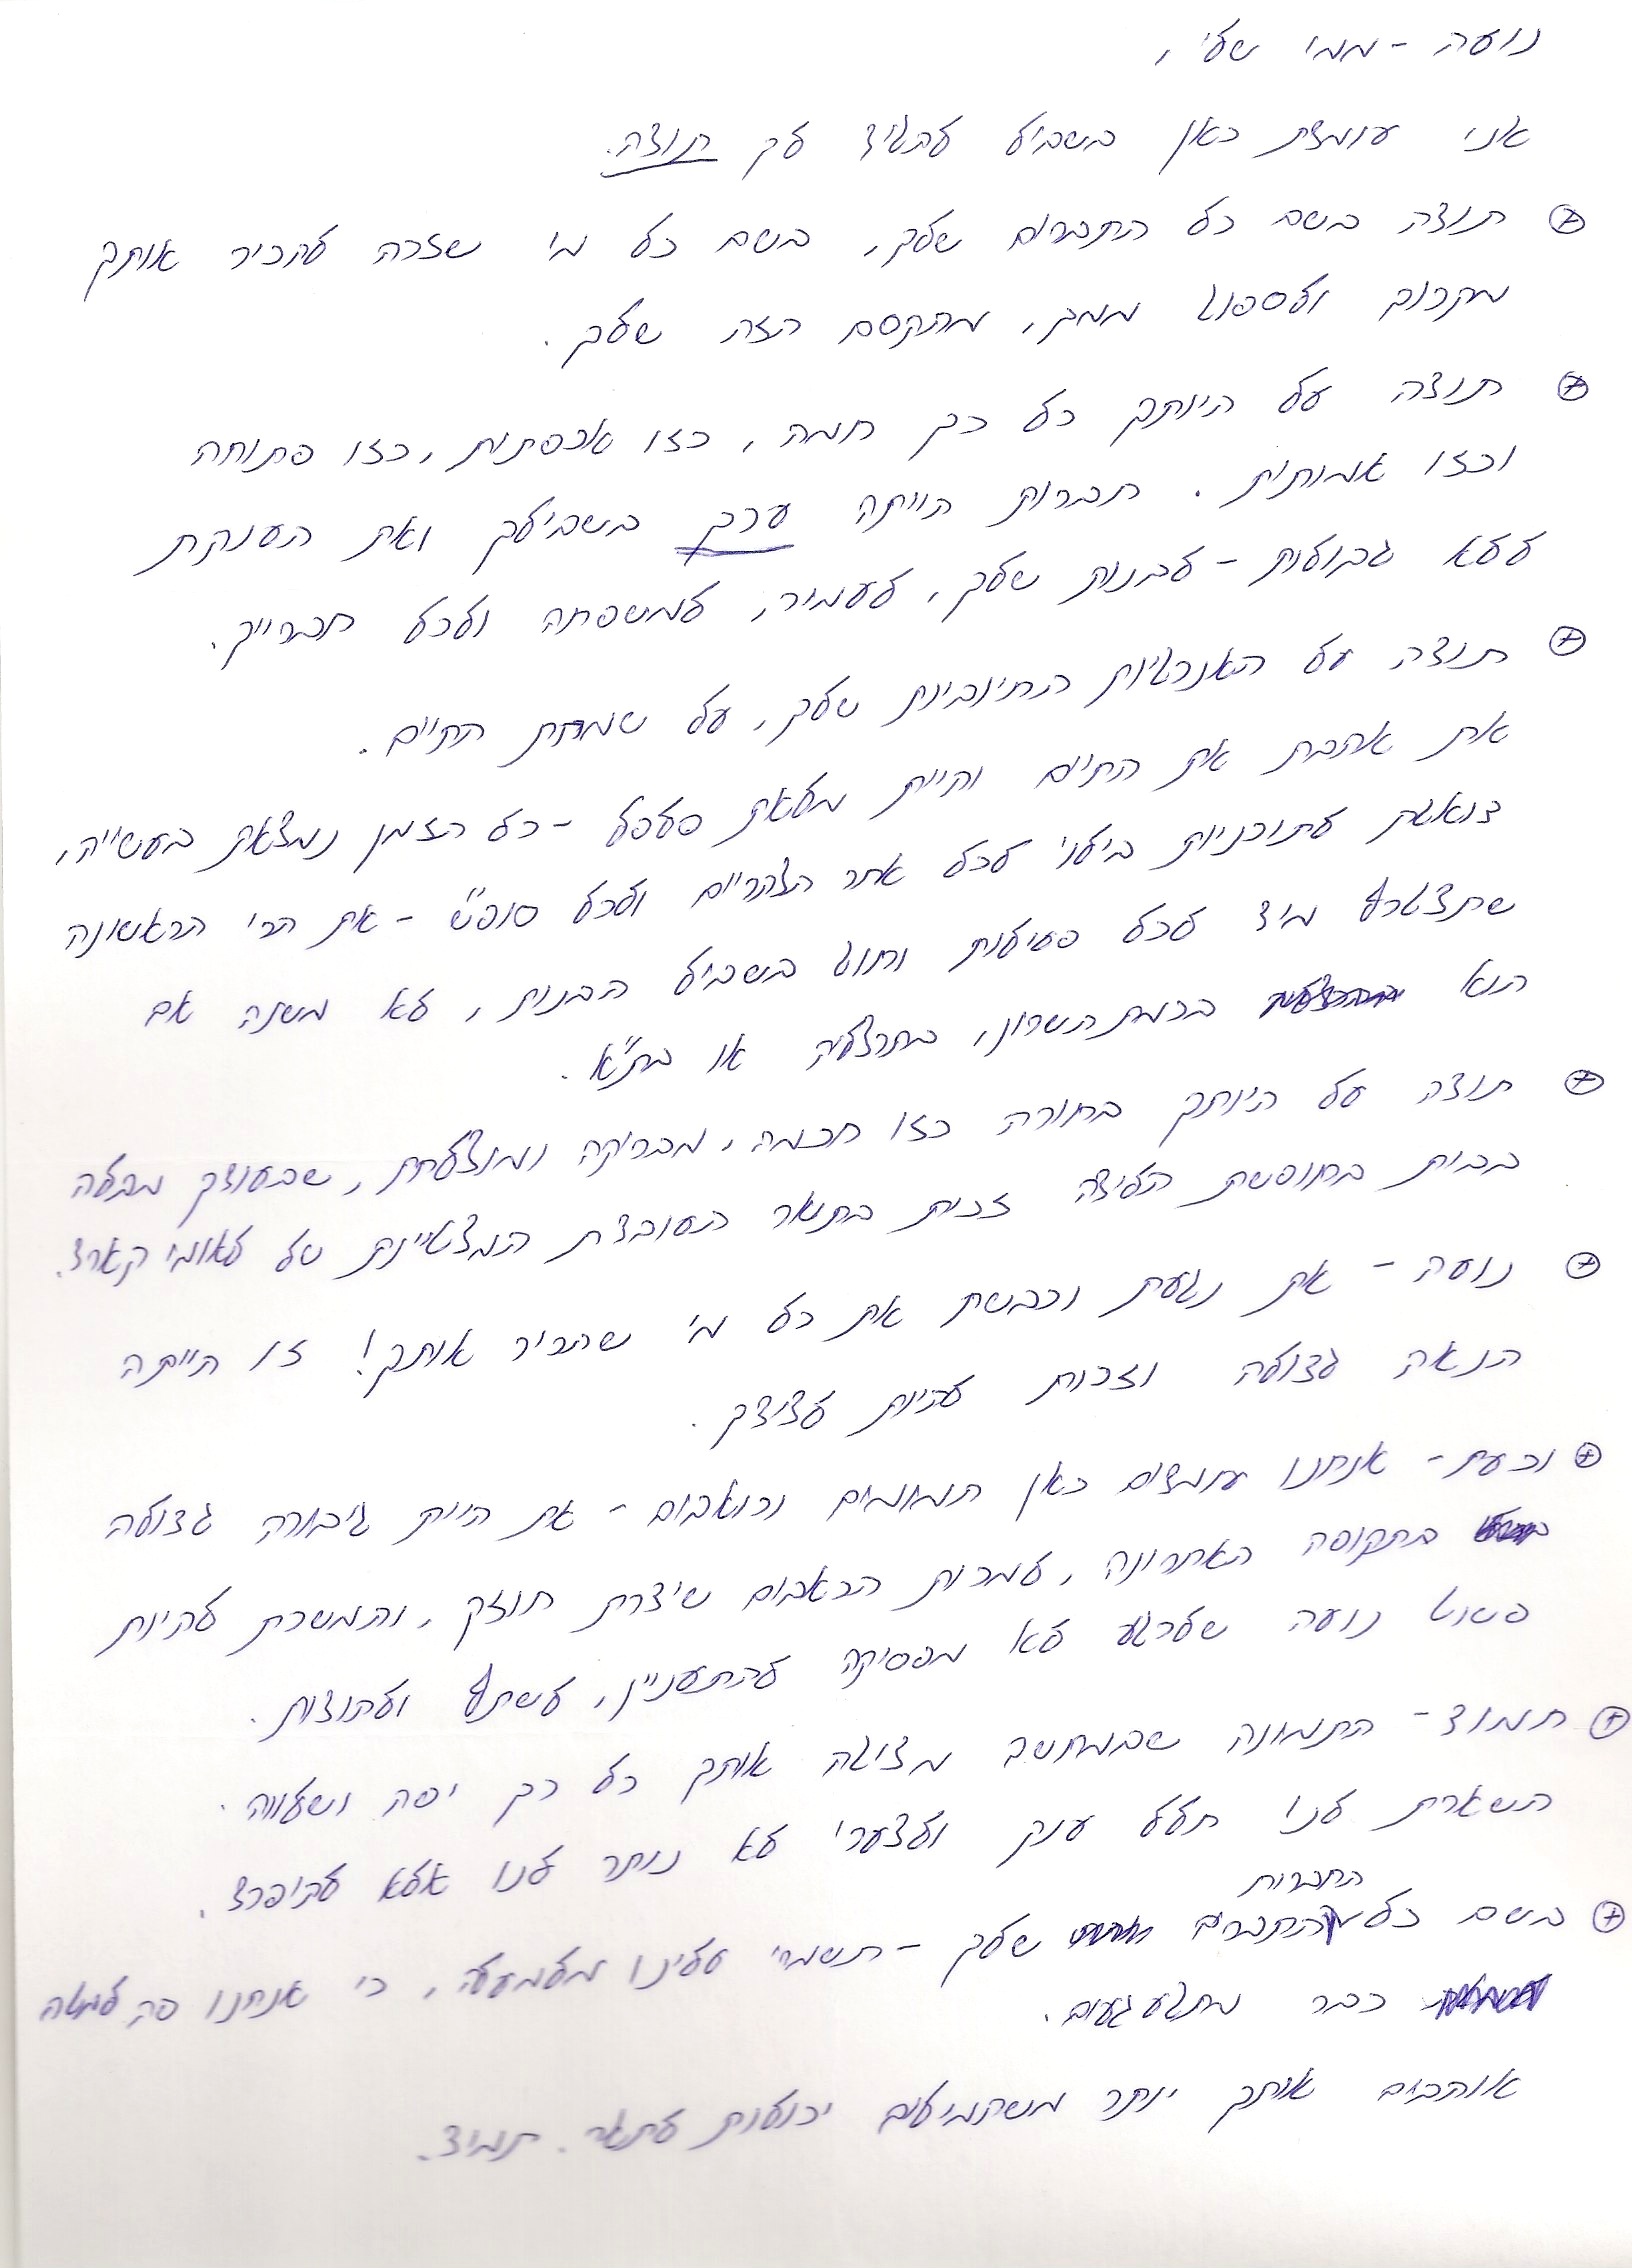 נועה - ממי שלי,
אני עומדת כאן בשביל להגיד לך תודה.
⊕ תודה בשם כל החברים שלך, בשם כל מי שזכה להכיר אותך
מקרוב ולספוג ממך, מהקסם הזה שלך.
⊕ תודה על היותך כל כך חמה, כזו אכפתית, כזו פתוחה
וכזו אמיתית. חברות הייתה ערך בשבילך ואת הענקת
ללא גבולות - לבנות שלך, לעמיר, למשפחה ולכל חברייך.
⊕ תודה על האנרגיות החיוביות שלך, על שמחת החיים.
את אהבת את החיים והיית מלאת פלפל - כל הזמן נמצאת בעשייה,
דואגת לתוכניות בילוי לכל אחר הצהריים ולכל סופ"ש - את הרי הראשונה
שתצטרף מיד לכל פעילות וחוג בשביל הבנות, לא משנה אם
הוא ברמת השרון, בהרצליה או בת"א.
⊕ תודה על היותך בחורה כזו חכמה, מבריקה ומוצלחת, שבעודך מבלה
בבית בחופשת הלידה זכית בתואר העובדת המצטיינת של לאומי קארד.
⊕ נועה - את נגעת וכבשת את כל מי שהכיר אותך! זו הייתה
הנאה גדולה וזכות להיות לצידך.
⊕ וכעת - אנחנו עומדים כאן המומים וכואבים - את היית גיבורה גדולה
בתקופה האחרונה, למרות הכאבים שידרת חוזק, והמשכת להיות
פשוט נועה שלרגע לא מפסיקה להתעניין, לשתף ולהודות.
⊕ חמוד - התמונה שבמחשב מציגה אותך כל כך יפה ושלווה.
השארת לנו חלל ענק ולצערי לא נותר לנו אלא להיפרד.
החברות
⊕ בשם כל החברים שלך - תשמרי עלינו מלמעלה, כי אנחנו פה למטה
כבר מתגעגעים.
אוהבים אותך יותר משהמילים יכולות לתאר. תמיד.